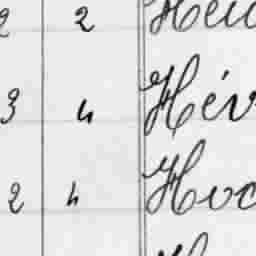 2 2 Heu
3 4 Hév
2 4 Hoc